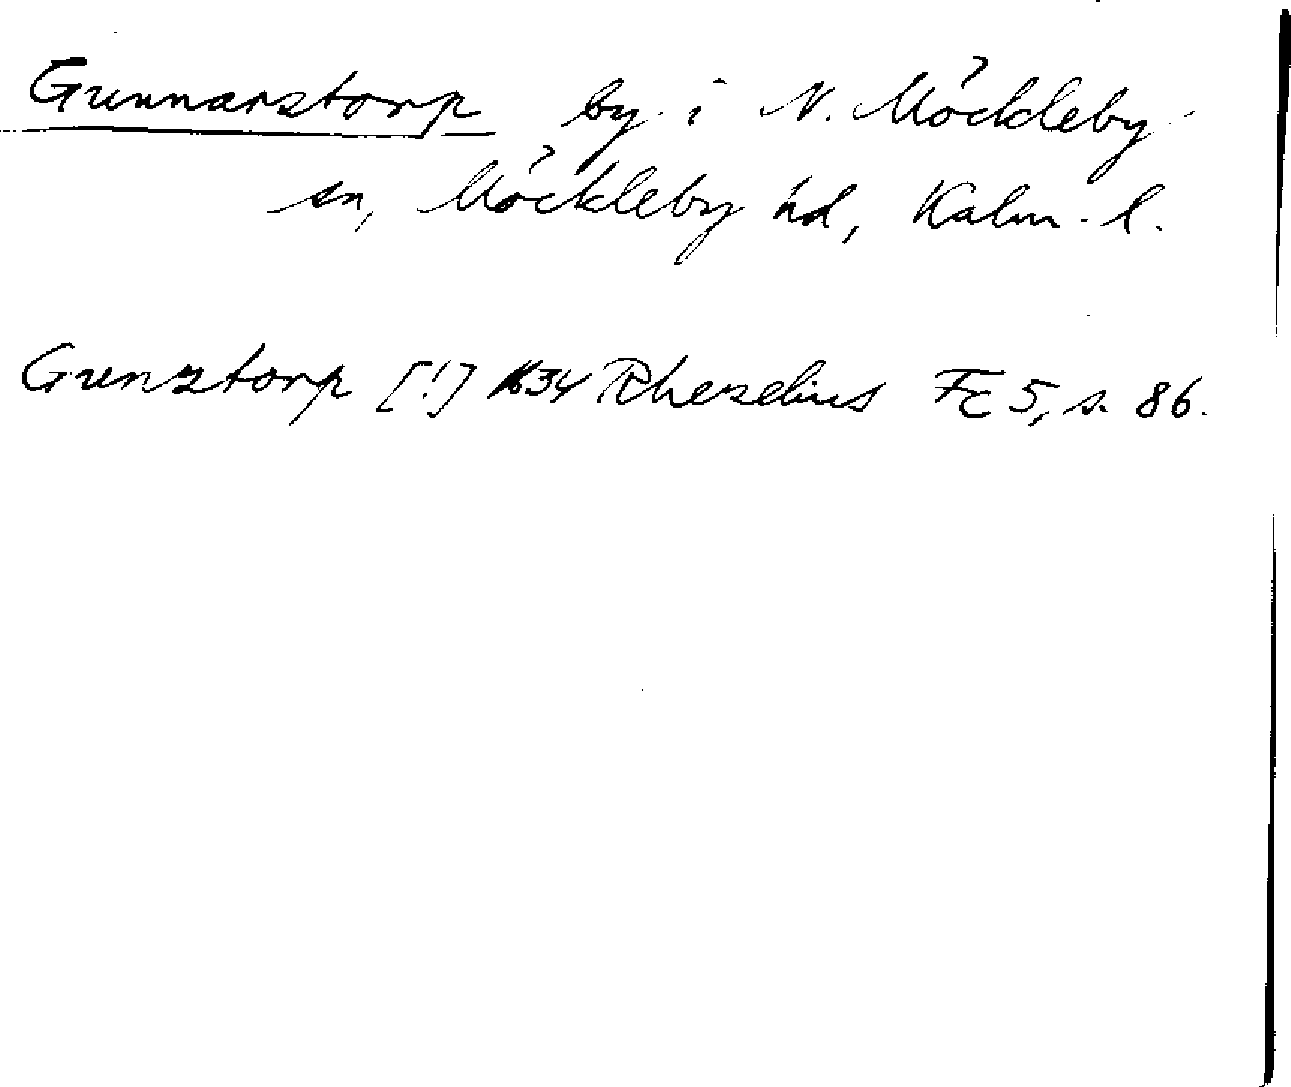 Gunnarstorp by i N. Möckleby
sn, Möckleby hd, Kalm. l.
Gunstorp [!] 1634 Rhezelius Fc 5, s. 86.